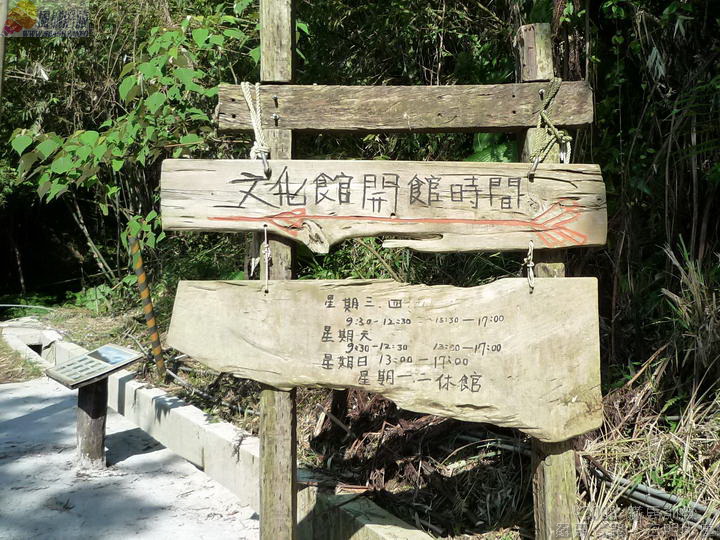 文化館開館時間
星期三.四
9:30-12:30 13:30-17:00
星期天
9:30-12:30 13:00-17:00
星期日 13:00-17:00
星期一.二休館